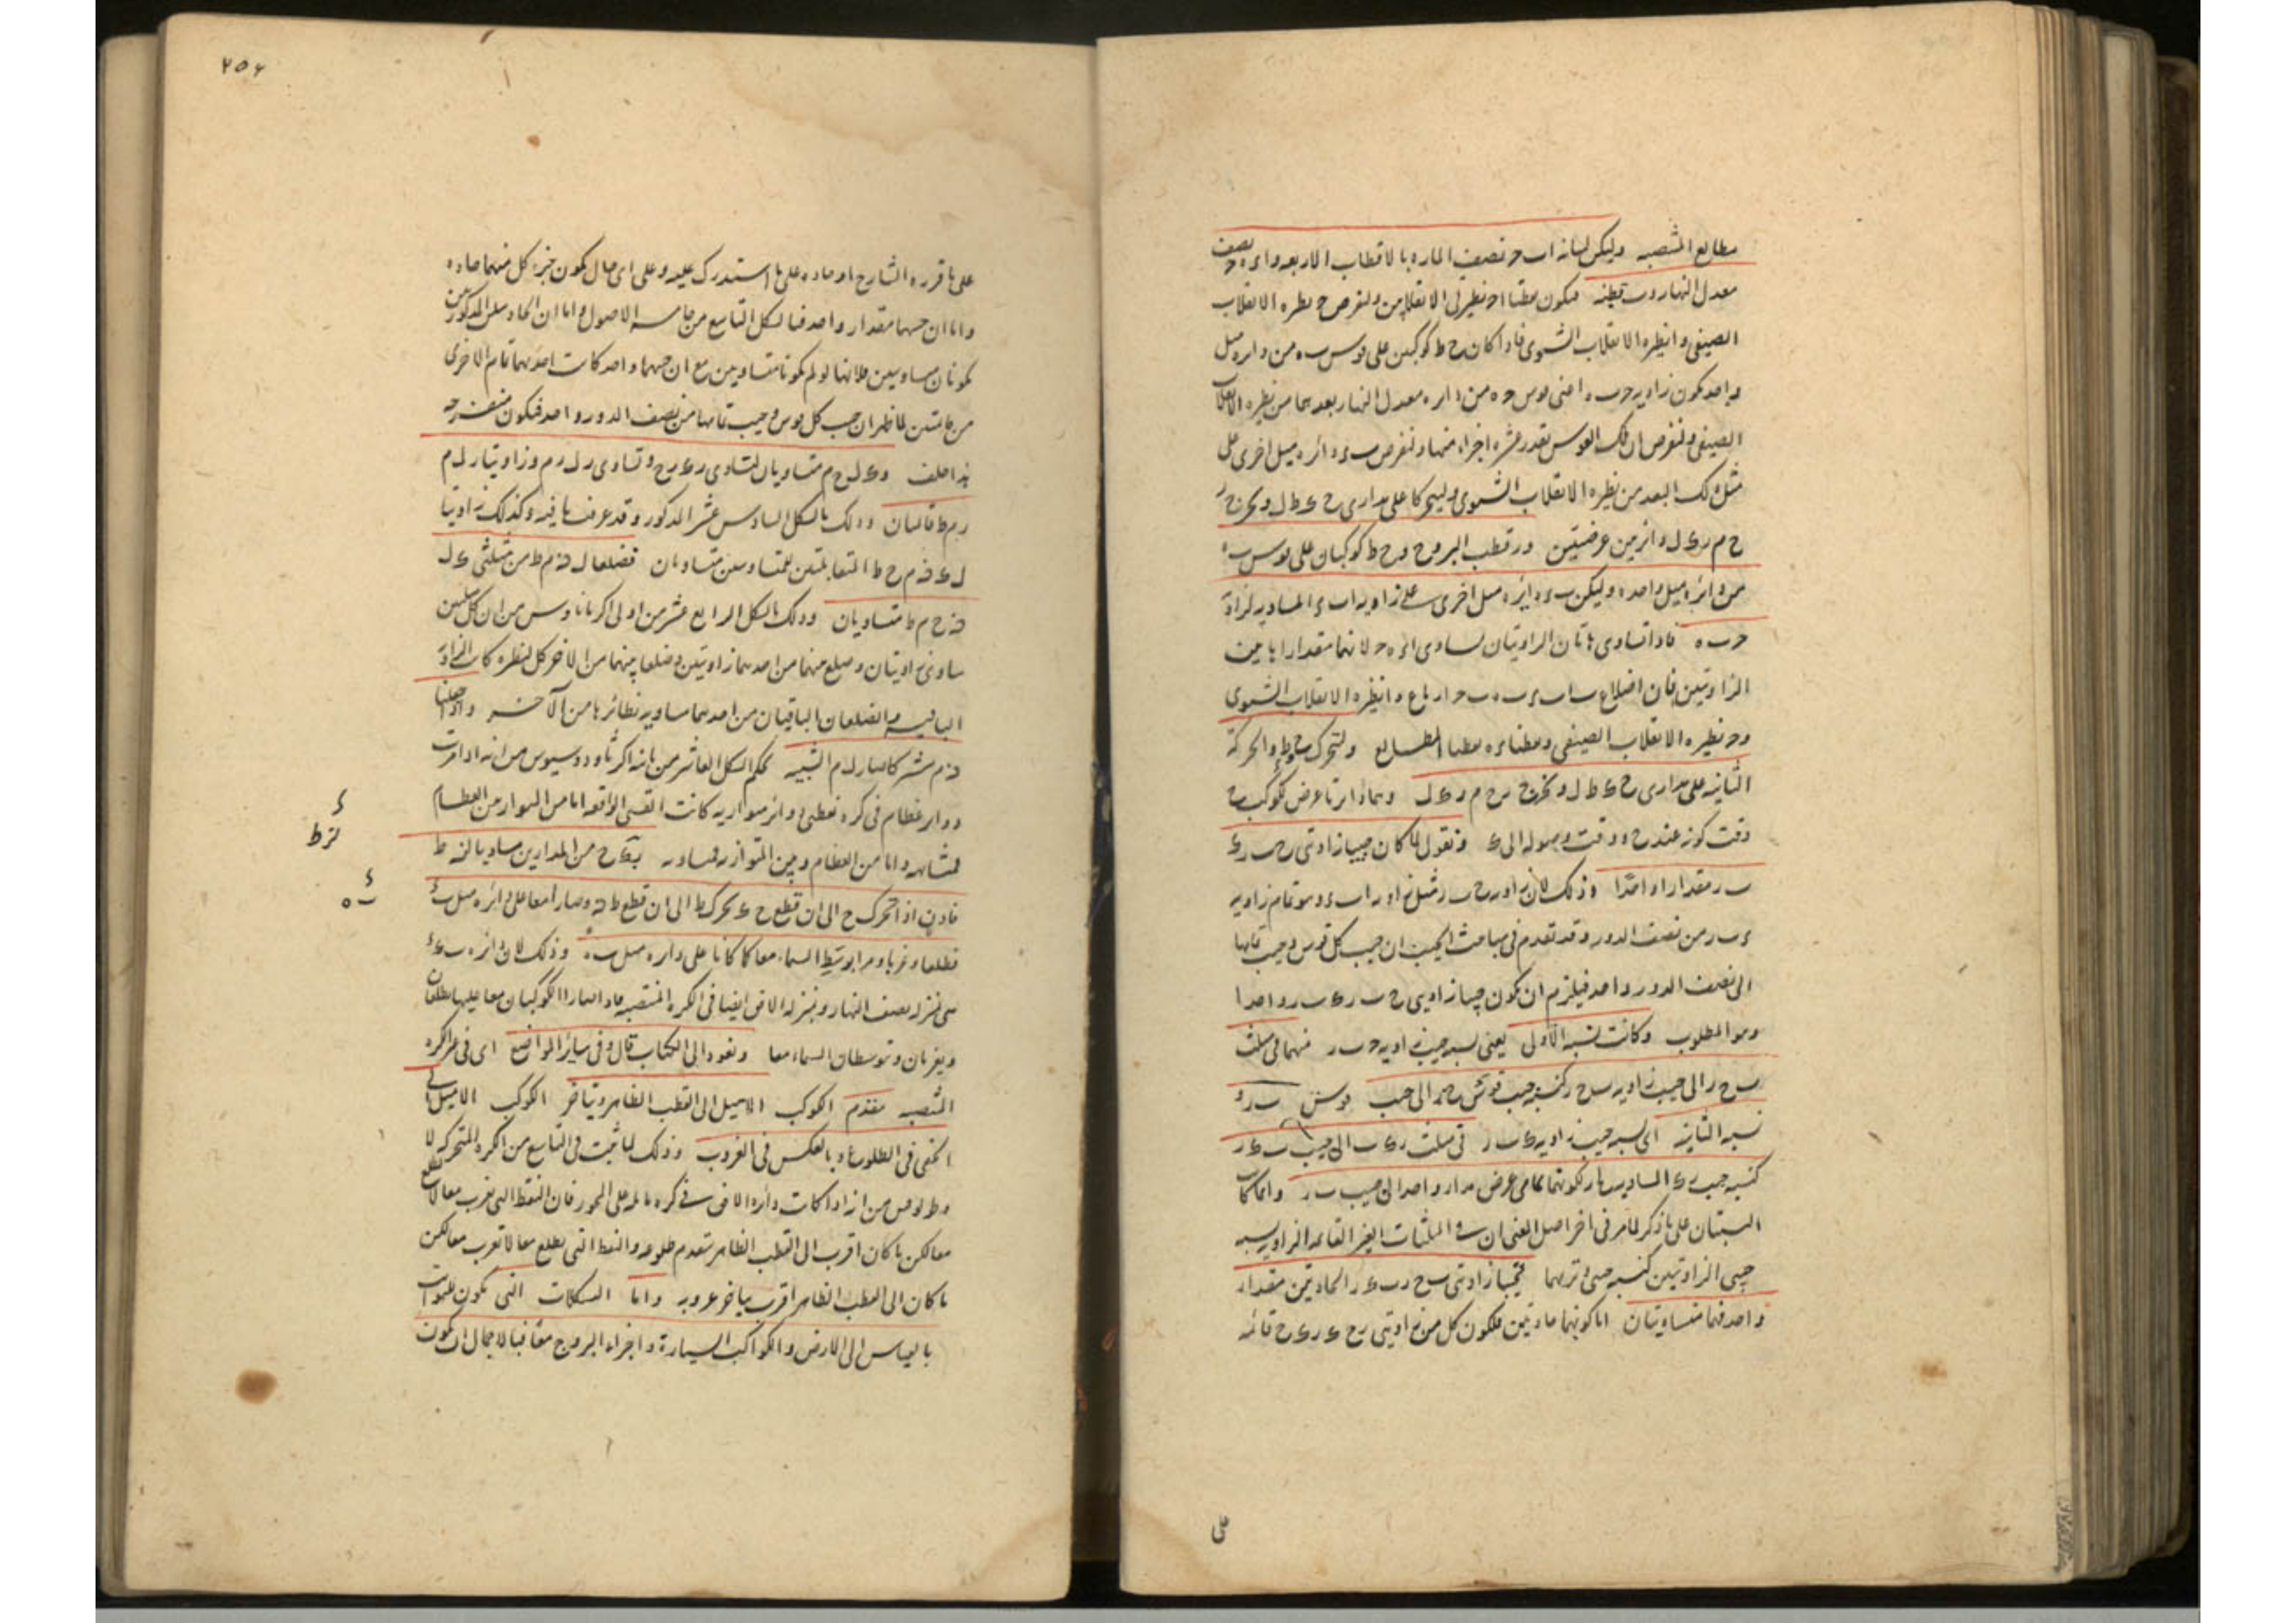 مطالع المنتصبه وليكن لبيانه اب ح نصف الماره بالاقطاب الاربعه و ا ء ه ح نصف
معدل النهار و ب قطبه فيكون نقطتا ا ح نظيرتى الانقلابين ولنفرض ح نظيره الانقلاب
الصيفى و ا نظيره الانقلاب الشتوى فاذا كان ح ط كوكبين على قوس ب ه من دايره ميل
واحد تكون زاويه ح ب ه اعنى قوس ح ه من دايره معدل النهار بعدهما من نظيره الانقلاب
الصيفى ولنفرض ان تلك القوس بقدر عشره اجزاء منها ولنفرض ب ء دائره ميل اخرى على
مثل ذلك البعد من نظيره الانقلاب الشتوى وليتحركا على مدارى ح ى ط ل ونخرج ر
ح م ر ى ل دائرتين عرضيتين و ر قطب البروج و ح ط كوكبان على قوس ب ه
من دائره ميل واحده وليكن ب ء دائره ميل اخرى على زاويه ا ب ء المساويه لزاوية
ح ب ه فاذا تساوى هاتان الزاويتان تساوى ا ء ه ح لانهما مقدارا هاتين
الزاويتين فان اضلاع ب ا ب ء ب ه ب ح ارباع و ا نظيره الانقلاب الشتوى
و ح نظيره الانقلاب الصيفى ونقطتا ء ه نقطتا المطالع ولتتحرك ح و ط بالحركة
الثانيه على مدارى ح ى ط ل ونخرج ر ح م و ر ى ل وهما دائرتا عرض لكوكب ح
وقت كونه عند ح ووقت وصوله الى ى ونقول لما كان جيبا زاويتى ح ب ر ى
ب ر مقدارا واحدا وذلك لان زاويه ح ب ر مثل زاويه ا ب ء وهو تمام زاويه
ء ب ر من نصف الدور وقد تقدم فى مباحث الجيب ان جيب كل قوس وجيب تمامها
الى نصف الدور واحد فيلزم ان يكون جيبا زاويتى ح ب ر ى ب ر واحدا
وهو المطلوب وكانت نسبة الاول يعنى نسبه جيب زاويه ح ب ر منهما فى مثلث
ب ح ر الى جيب زاويه ب ح ر كنسبه جيب قوس ر ح الى جيب قوس ب ر و
نسبه الثانيه اى نسبه جيب زاويه ى ب ر فى مثلث ر ى ب الى جيب ب ى ر
كنسبه جيب ر ى المساويه لها لكونهما تمامى عرض مدار واحد الى جيب ب ر وانما كانت
النسبتان على ما ذكر لما مر فى اخر اصل المغنى ان فى المثلثات الغير القائمه الزاويه نسبه
جيبى الزاويتين كنسبه جيبى وتريهما فجيبا زاويتى ب ح ر ب ى ر الحادتين مقدار
واحد فهما متساويتان اما كونهما حادتين فلكون كل من زاويتى ر ح ى ر ى ح قائمه
على
٢٥٤
على ما قرره الشارح او حاده على ما استدرك عليه وعلى اى حال يكون جزء كل منهما حاده
واما ان جيبهما مقدار واحد فبالشكل التاسع من خامسه الاصول واما ان الحادتين المذكورتين
تكونان متساويتين فلانهما لو لم تكونا متساويتين مع ان جيبهما واحد كانت احديهما تمام الاخرى
من قائمتين لما ظهر ان جيب كل قوس وجيب تمامها من نصف الدور واحد فيكون منفرجه
هذا خلف و ى ل ح م متساويان لتساوى ر ى ر ح وتساوى ر ل ر م وزاويتا ر ل م
ر م ط قائمتان وذلك بالشكل السادس عشر المذكور وقد عرفت ما فيه وكذلك زاويتا
ل ى ز م ح ط المتقابلتين للمتساويتين متساويتان فضلعا ل ز م ط من مثلثى ى ل
ز ح م ط متساويان وذلك بالشكل الرابع عشر من اولى اكر مانالاوس من ان كل مثلثين
ساوى زاويتان وضلع منهما من احدهما زاويتين وضلعا منهما من الاخر كل لنظيره كانت الزاوية
الباقيه والضلعان الباقيان من احدهما مساويه نظائرها من الآخر واذا جعلنا
ز م مشتركا صار ل م الشبيه بحكم الشكل العاشر من ثانيه اكر ثاودوسيوس من انه اذا مرت
دوائر عظام فى كره بقطبى دوائر متوازيه كانت القسى الواقعه اما من المتوازيه بين العظام
فمتشابهه واما من العظام وبين المتوازيه فمتساويه بى ح من المدارين مساويا لز ط
فاذن اذا تحرك ح الى ان قطع ح ى تحرك ط الى ان قطع ط ز وصارا معا على دائره ميل ب ء
فطلعا وغربا ومرا بوسط السماء معا كما كانا على دائره ميل ب ه وذلك لان دائره ب ى ء
هى بمنزله نصف النهار وبمنزله الافق ايضا فى الكره المنتصبه فاذا صارا الكوكبان معا عليها يطلعان
ويغربان ويتوسطان السماء معا ونعود الى الكتاب قال وفى سائر المواضع اى فى غير الكره
المنتصبه يتقدم الكوكب الاميل الى القطب الظاهر ويتاخر الكوكب الاميل الى
الخفى فى الطلوع وبالعكس فى الغروب وذلك لما ثبت فى التاسع من الكره المتحركه لا
وطولوقس من انه اذا كانت دائره الافق فى كره مائله على المحور فان النقط التى تغرب معا لا تطلع
معا لكن ما كان اقرب الى القطب الظاهر يتقدم طلوعه والنقط التى تطلع معا لا تغرب معا لكن
ما كان الى القطب الظاهر اقرب يتاخر غروبه واما الشكلات التى تكون للثوابت
بالقياس الى الارض والكواكب السيارة واجزاء البروج معا فبالاجمال ان تكون
ى
لز ط
ء
ب ه